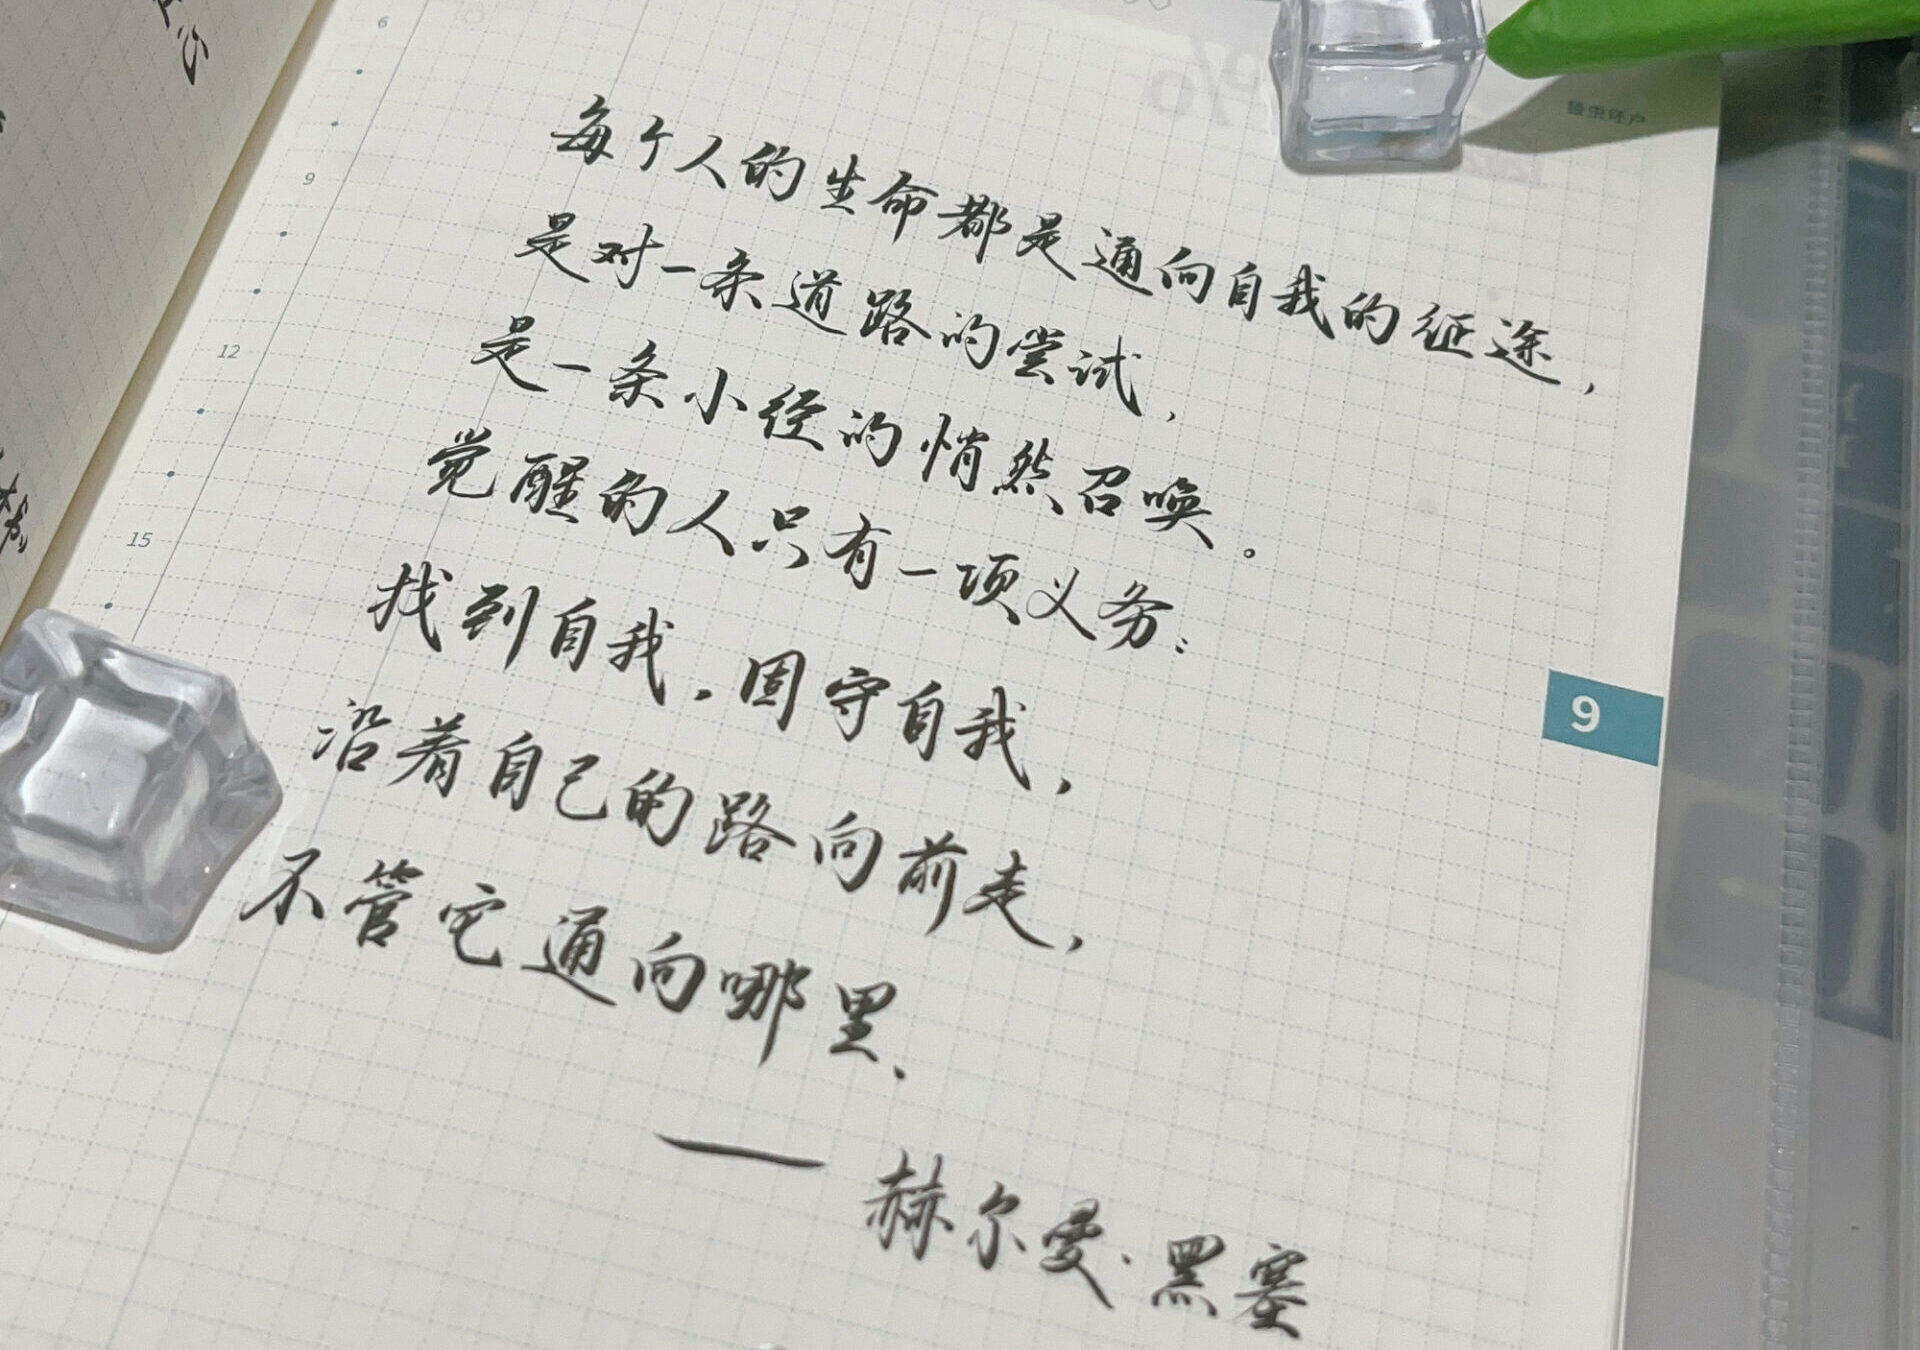 6
9
12
15
每个人的生命都是通向自我的征途,
是对一条道路的尝试,
是一条小径的悄然召唤。
觉醒的人只有一项义务:
找到自我,固守自我,
沿着自己的路向前走,
不管它通向哪里.
— 赫尔曼·黑塞
9